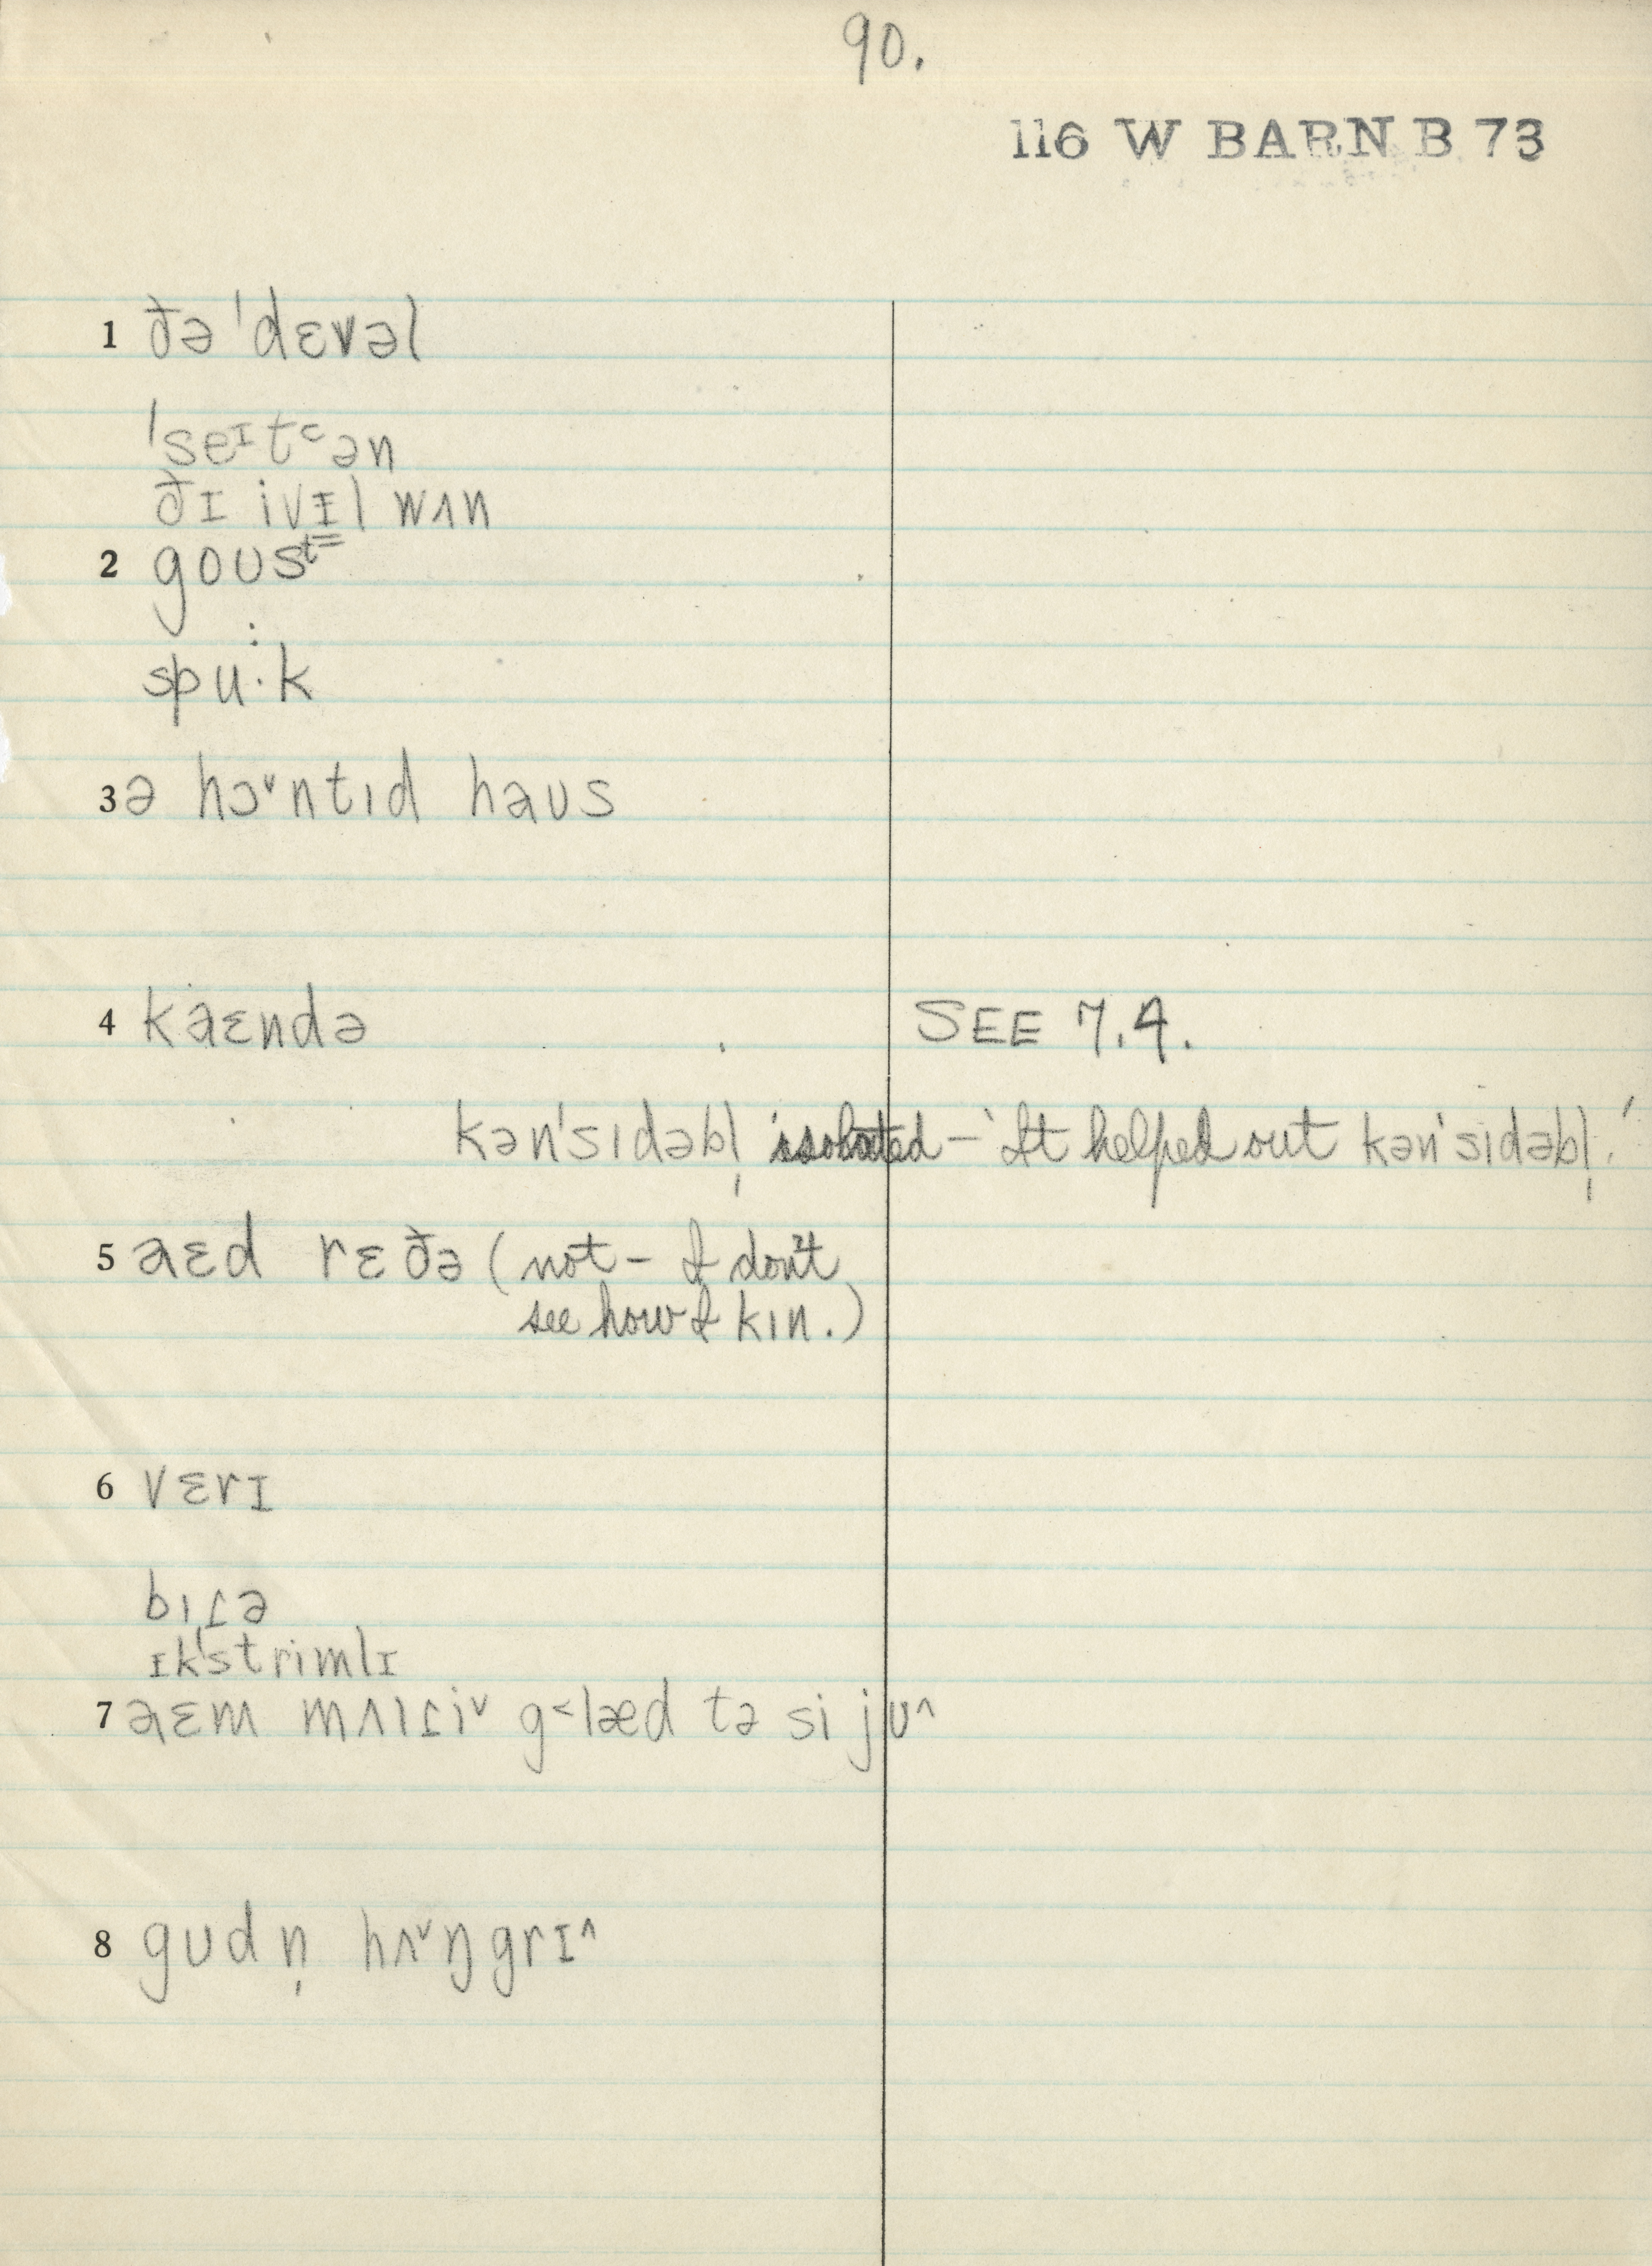 90.
116 W BARN B 73
1 ðə ˈdɛvəl
ˈseᶦt˂ən
ðɪ ivɪ̵l wʌn
2 goʊsᵗ⁼
spu:k
3 ə hɔ˅ntıd haʊs
4 kaɛndə SEE 7.4.
kənˈsıdəbl̩ isolated – 'It helped out kənˈsıdəbl̩.'
5 aɛd rɛðə (not – I don't
see how I kın.)
6 vɛrɪ
bıɾə
ɪkˈstrimlɪ
7 aɛm mʌıɾi˅ g˂læd tə si jʊ^
8 gʊdn̩ hʌ˅ŋgrɪ^